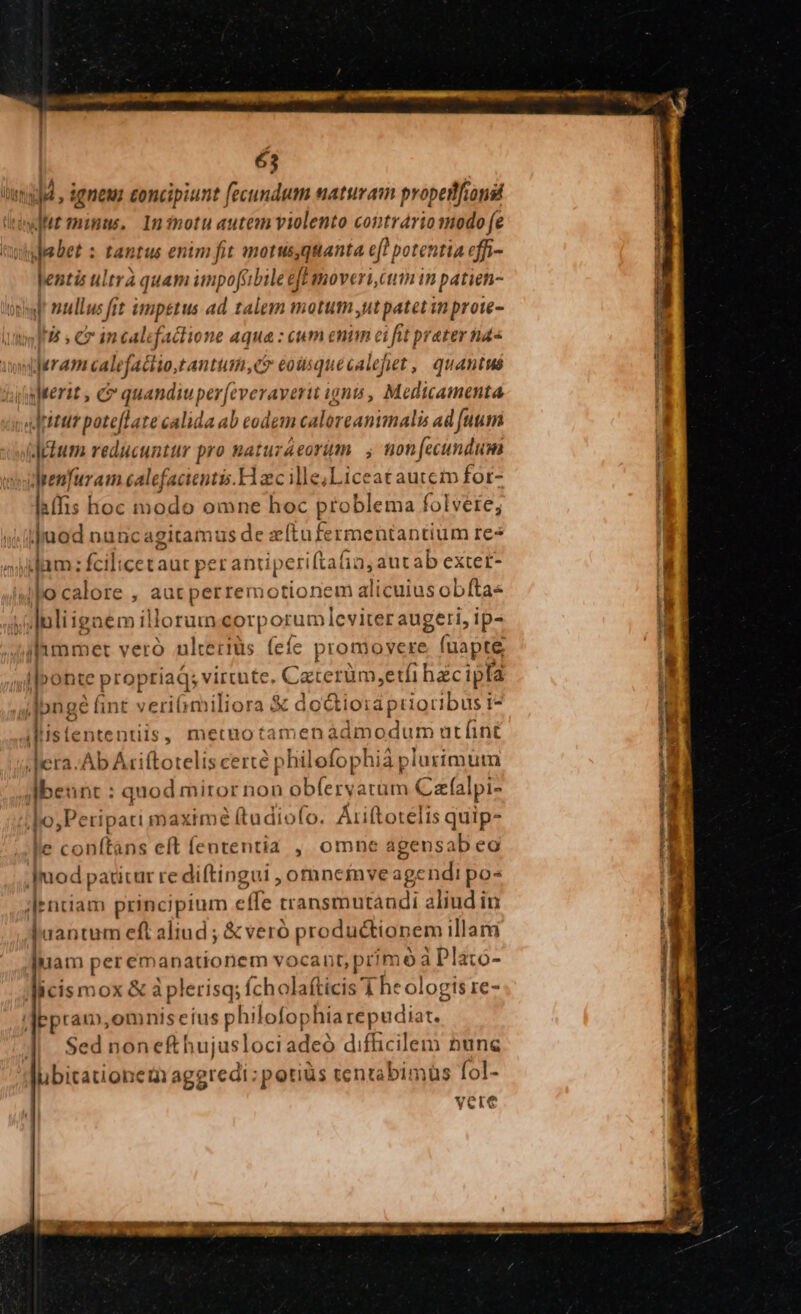 63
, ignem concipiunt ſecundum naturam propenſioni
ut minus. In motu autem violento contrario modo ſe
habet : tantus enim fit motus,quanta eſt potentia effi-
ientis ultrà quam impoſsibile eſt moveri,cum in patien-
nullus fit impetus ad talem motum ,ut patet in proie-
is , & in calefactione aquæ : cum enim ei fit præter na-
uram calefactio,tantum,& eoúsque calefiet , quantus
uerit , & quandiu perſeveraverit ignis , Medicamenta
itur poteſtate calida ab eodem calore animalis ad ſuum
ctum reducuntur pro naturâ eorum , non ſecundum
enſuram calefacientis. Hæc ille, Liceat autem for-
aſſis hoc modo omne hoc problema ſolvere,
uod nunc agitamus de æſtu fermentantium re-
um : ſcilicet aut per antiperiſtaſin, aut ab exter-
o calore , aut per remotionem alicuius obſta-
uli ignem illorum corporum leviter augeri, ip-
ummet verò ulteriùs ſeſe promovere ſuapte
ponte propriaq; virtute. Cæterùm,etſi hæc ipſa
ongè ſint veriſimiliora & doctiora prioribus i-
is ſententiis, metuo tamen admodum ut ſint
era. Ab Ariſtotelis certè philoſophiâ plurimum
beunt : quod miror non obſervatum Cæſalpi-
o, Peripati maximè ſtudioſo. Ariſtotelis quip-
e conſtans eſt ſententia , omne agens ab eo
uod patitur re diſtingui , omnemve agendi po-
entiam principium eſſe transmutandi aliud in
uantum eſt aliud ; & verò productionem illam
uam per emanationem vocant, primò à Plato-
icis mox & à plerisq; ſcholaſticis Theologis re-
eptam, omnis eius philoſophia repudiat.
Sed non eſt hujus loci adeò difficilem nunc
ubitationem aggredi : potiùs tentabimus ſol-
vere